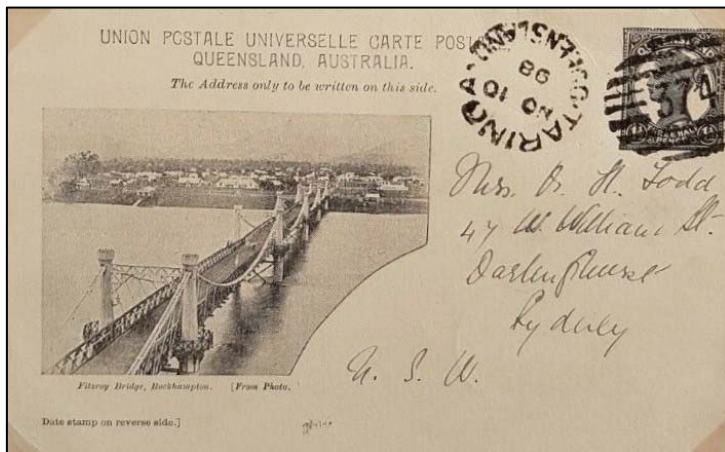 UNION POSTALE UNIVERSELLE CARTE POS
QUEENSLAND, AUSTRALIA.
The Address only to be written on this side.
TARINGA QUEENSLAND
NO 10
98
QUEENSLAND
374
Mrs. B. H. Todd
47 W. William St.
Darlinghurst
Sydney
N. S. W.
Fitzroy Bridge, Rockhampton. [From Photo.
Date stamp on reverse side.]